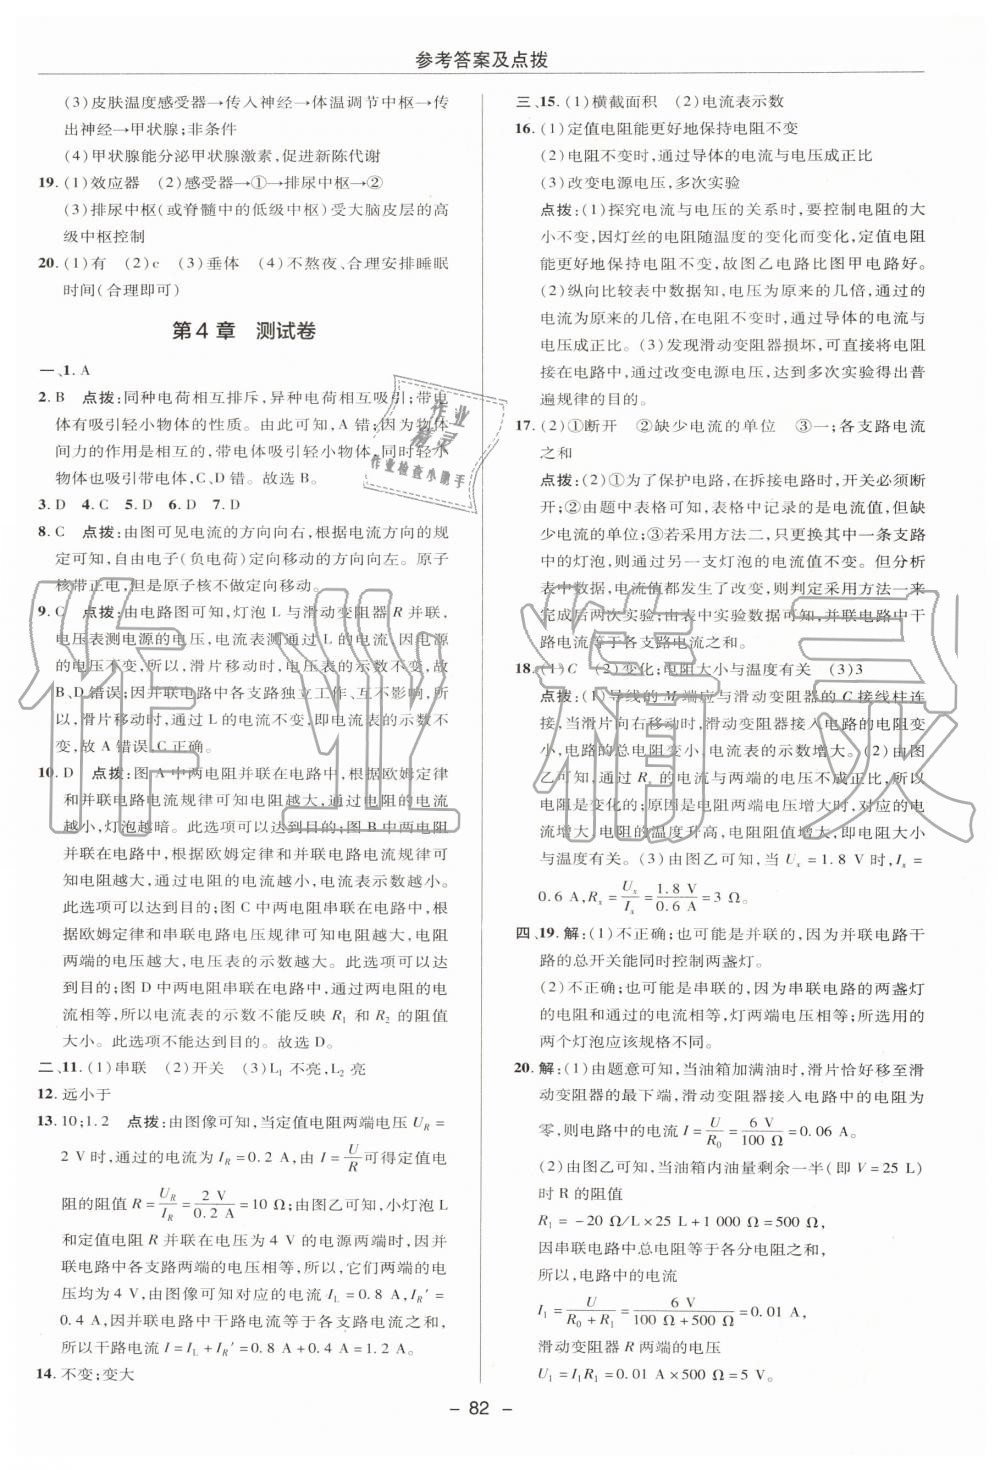 参考答案及点拨
(3)皮肤温度感受器→传入神经→体温调节中枢→传
出神经→甲状腺;非条件
(4)甲状腺能分泌甲状腺激素,促进新陈代谢
19. (1)效应器 (2)感受器→①→排尿中枢→②
(3)排尿中枢(或脊髓中的低级中枢)受大脑皮层的高
级中枢控制
20. (1)有 (2)c (3)垂体 (4)不熬夜、合理安排睡眠
时间(合理即可)
第4章 测试卷
一、1. A
2. B 点拨:同种电荷相互排斥,异种电荷相互吸引;带电
体有吸引轻小物体的性质。由此可知,A错;因为物体
间力的作用是相互的,带电体吸引轻小物体,同时轻小
物体也吸引带电体,C、D错。故选B。
3. D 4. C 5. D 6. D 7. D
8. C 点拨:由图可见电流的方向向右,根据电流方向的规
定可知,自由电子(负电荷)定向移动的方向向左。原子
核带正电,但是原子核不做定向移动。
9. C 点拨:由电路图可知,灯泡L与滑动变阻器R并联,
电压表测电源的电压,电流表测通过L的电流,因电源
的电压不变,所以,滑片移动时,电压表的示数不变,故
B、D错误;因并联电路中各支路独立工作、互不影响,所
以,滑片移动时,通过L的电流不变,即电流表的示数不
变,故A错误、C正确。
10. D 点拨:图A中两电阻并联在电路中,根据欧姆定律
和并联电路电流规律可知电阻越大,通过电阻的电流
越小,灯泡越暗。此选项可以达到目的;图B中两电阻
并联在电路中,根据欧姆定律和并联电路电流规律可
知电阻越大,通过电阻的电流越小,电流表示数越小。
此选项可以达到目的;图C中两电阻串联在电路中,根
据欧姆定律和串联电路电压规律可知电阻越大,电阻
两端的电压越大,电压表的示数越大。此选项可以达
到目的;图D中两电阻串联在电路中,通过两电阻的电
流相等,所以电流表的示数不能反映 R₁ 和 R₂ 的阻值
大小。此选项不能达到目的。故选D。
二、11. (1)串联 (2)开关 (3)L₁ 不亮,L₂ 亮
12. 远小于
13. 10;1.2 点拨:由图像可知,当定值电阻两端电压 U_R =
2 V时,通过的电流为 I_R=0.2 A,由 I=U/R可得定值电
阻的阻值 R=U_R/I_R=2 V/0.2 A=10 Ω;由图乙可知,小灯泡L
和定值电阻R并联在电压为4 V的电源两端时,因并
联电路中各支路两端的电压相等,所以,它们两端的电
压均为4 V,由图像可知对应的电流 I_L=0.8 A,I_R′=
0.4 A,因并联电路中干路电流等于各支路电流之和,
所以干路电流 I=I_L+I_R′=0.8 A+0.4 A=1.2 A。
14. 不变;变大
三、15. (1)横截面积 (2)电流表示数
16. (1)定值电阻能更好地保持电阻不变
(2)电阻不变时,通过导体的电流与电压成正比
(3)改变电源电压,多次实验
点拨:(1)探究电流与电压的关系时,要控制电阻的大
小不变,因灯丝的电阻随温度的变化而变化,定值电阻能
更好地保持电阻不变,故图乙电路比图甲电路好。
(2)纵向比较表中数据知,电压为原来的几倍,通过的
电流为原来的几倍,在电阻不变时,通过导体的电流与
电压成正比。(3)发现滑动变阻器损坏,可直接将电阻
接在电路中,通过改变电源电压,达到多次实验得出普
遍规律的目的。
17. (2)①断开 ②缺少电流的单位 ③一;各支路电流
之和
点拨:(2)①为了保护电路,在拆接电路时,开关必须断
开;②由题中表格可知,表格中记录的是电流值,但缺
少电流的单位;③若采用方法二,只更换其中一条支路
中的灯泡,则通过另一支灯泡的电流值不变。但分析
表中数据,电流值都发生了改变,则判定采用方法一来
完成后两次实验;由表中实验数据可知,并联电路中干
路电流等于各支路电流之和。
18. (1)C (2)变化;电阻大小与温度有关 (3)3
点拨:(1)导线的M端应与滑动变阻器的C接线柱连
接,当滑片向右移动时,滑动变阻器接入电路的电阻变
小,电路的总电阻变小,电流表的示数增大。(2)由图
乙可知,通过 Rₓ 的电流与两端的电压不成正比,所以
电阻是变化的;原因是电阻两端电压增大时,对应的电
流增大,电阻的温度升高,电阻阻值增大,即电阻大小
与温度有关。(3)由图乙可知,当 Uₓ=1.8 V时,Iₓ=
0.6 A,Rₓ=Uₓ/Iₓ=1.8 V/0.6 A=3 Ω。
四、19. 解:(1)不正确;也可能是并联的,因为并联电路干
路的总开关能同时控制两盏灯。
(2)不正确;也可能是串联的,因为串联电路的两盏灯
的电阻和通过的电流相等,灯两端电压相等;所使用的
两个灯泡应该规格不同。
20. 解:(1)由题意可知,当油箱加满油时,滑片恰好移至滑
动变阻器的最下端,滑动变阻器接入电路中的电阻为
零,则电路中的电流 I=U/R₀=6 V/100 Ω=0.06 A。
(2)由图乙可知,当油箱内油量剩余一半(即V=25 L)
时R的阻值
R₁=-20 Ω/L×25 L+1 000 Ω=500 Ω,
因串联电路中总电阻等于各分电阻之和,
所以,电路中的电流
I₁=U/(R₀+R₁)=6 V/(100 Ω+500 Ω)=0.01 A,
滑动变阻器R两端的电压
U₁=I₁R₁=0.01 A×500 Ω=5 V。
作业
精灵
作业检查小助手
作业精灵
- 82 -